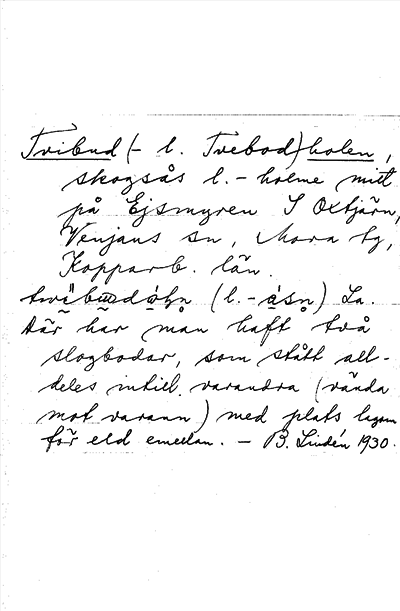 Tvibud(- l. Tvebod)holen,
skogsås l. - holme mitt
på Ejsmyren S Oxtjärn,
Venjans sn, Mora tg,
Kopparb. län.
(l. -åsn) La.
där har man haft två
slogbodar, som stått all-
deles intill varandra (vända
mot varann) med plats lagom
för eld emellan. - B. Lindén 1930.